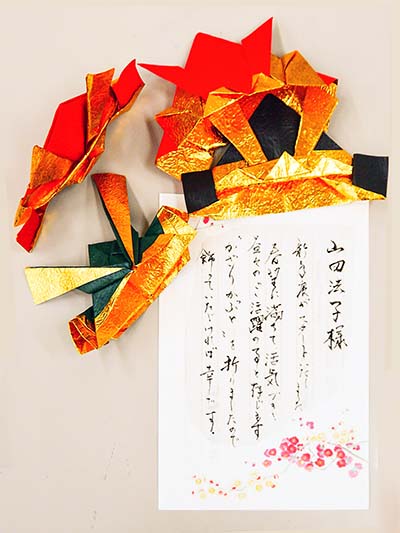 山田法子様
新年度がスタートいたしました
希望に満ちて活気づき
益々のご活躍のことと存じます
かがりかぶとを折りましたので
飾っていただければ幸いです。